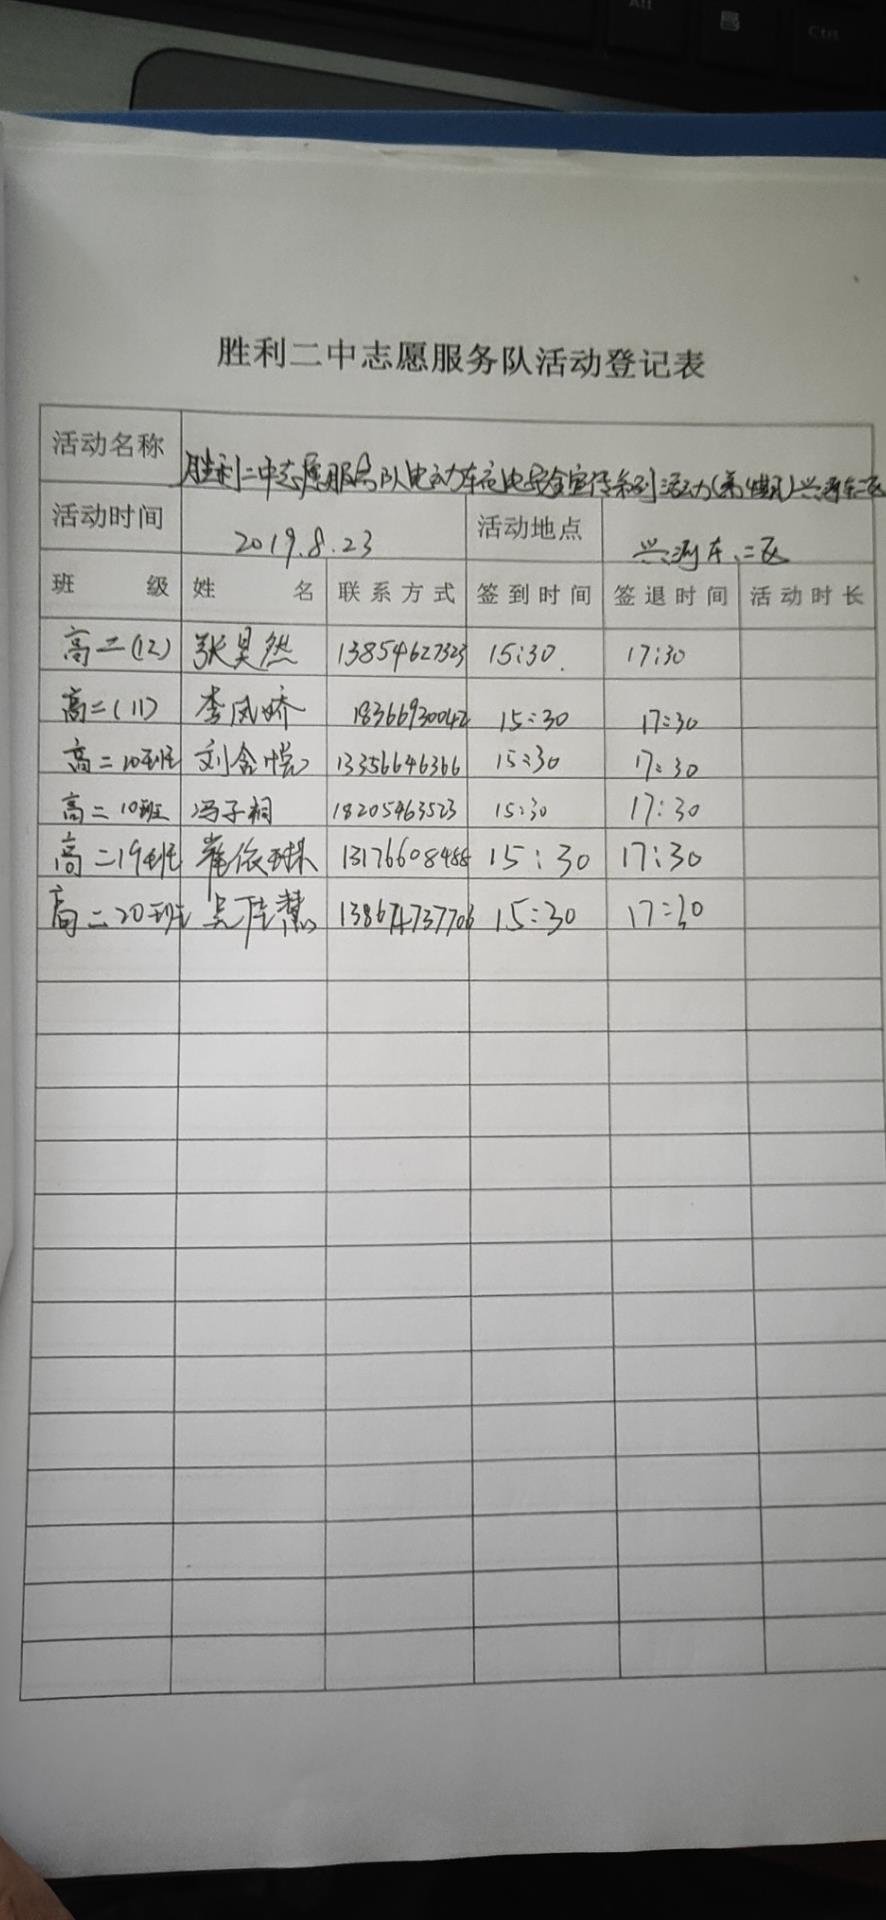 Alt
Ctrl
胜利二中志愿服务队活动登记表
活动名称 胜利二中志愿服务队电动车充电安全宣传系列活动(第 期)兴 东二区
活动时间 2019.8.23 活动地点 兴 东二区
班级 姓名 联系方式 签到时间 签退时间 活动时长
高二(12) 张昊然 13854627323 15:30 17:30
高二(11) 李凤娇 18366930042 15:30 17:30
高二10班 刘 13356646366 15:30 17:30
高二10班 冯子桐 18205463523 15:30 17:30
高二19班 依琳 13176608488 15:30 17:30
高二20班 吴佳慧 13867 15:30 17:30